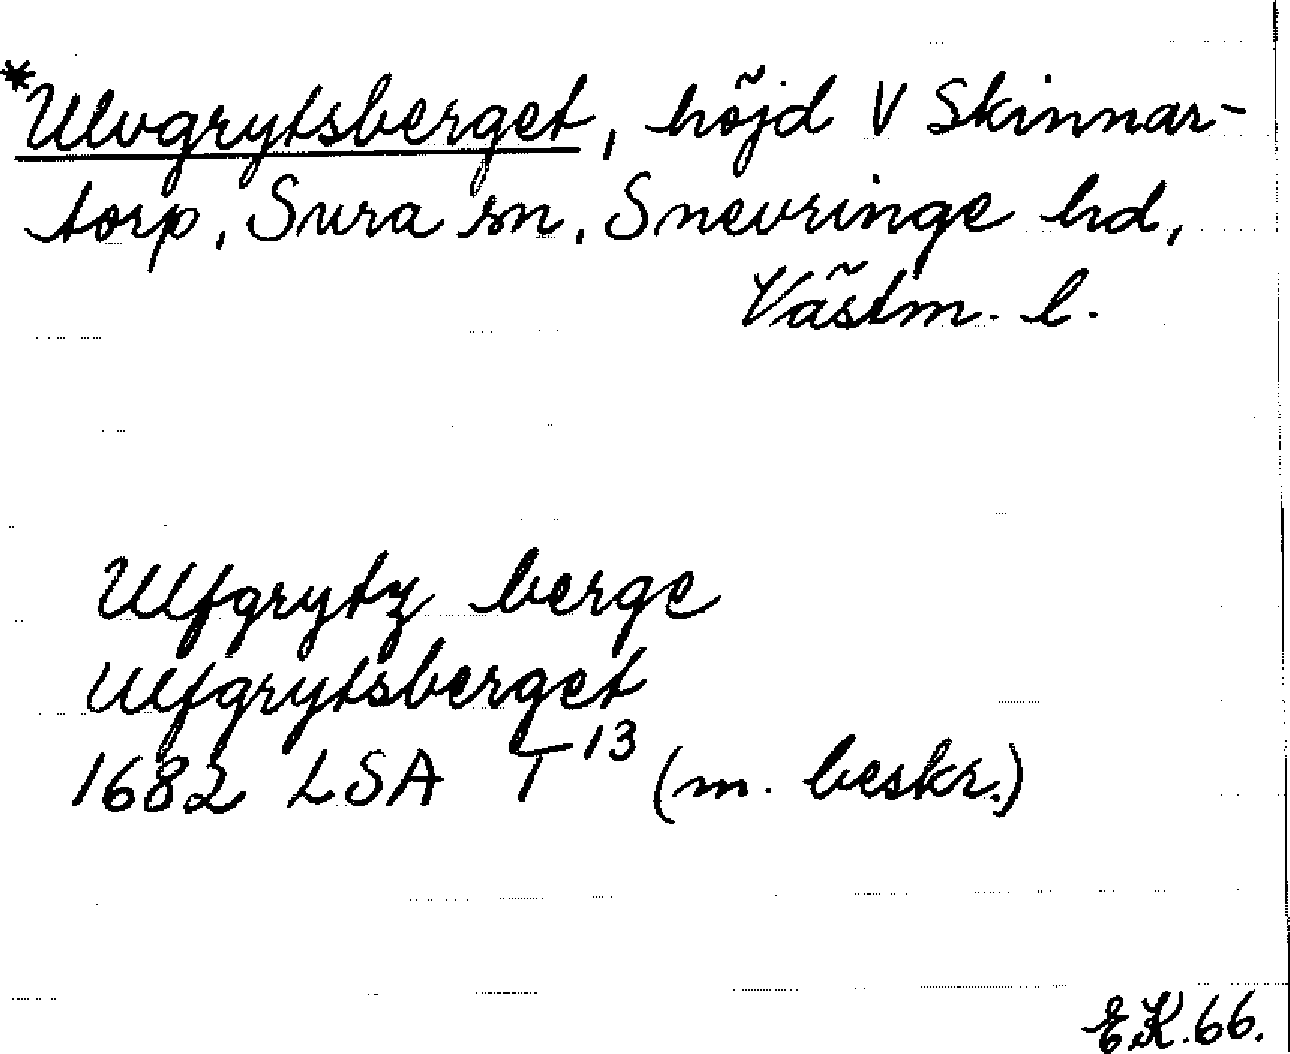 *Ulvgrytsberget, höjd V Skinnar-
torp, Sura sn, Snevringe hd,
Västm. l.
Ulfgrytz berge
Ulfgrytsberget
1682 LSA T 13 (m. beskr.)
E.K. 66.